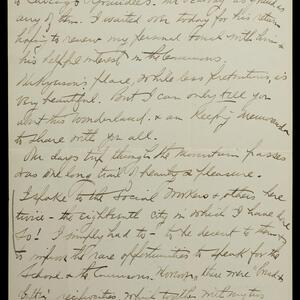 any of them. I waited over today for his return
hoping to renew my personal touch with him &
his helpful interest in the Commons.
place, while less pretentious, is
very beautiful. But I can only tell you
about this Wonderland & am keeping Memoranda
to share with you all.
Our days trip through the Mountain passes
was one long trail of beauty & pleasure.
I spoke to the Social Workers & others here
twice - the eighteenth city in which I have done
so! I simply had to - to be decent to them &
to improve the rare opportunities to speak for the
School & the Commons. Moreover there were
which together with